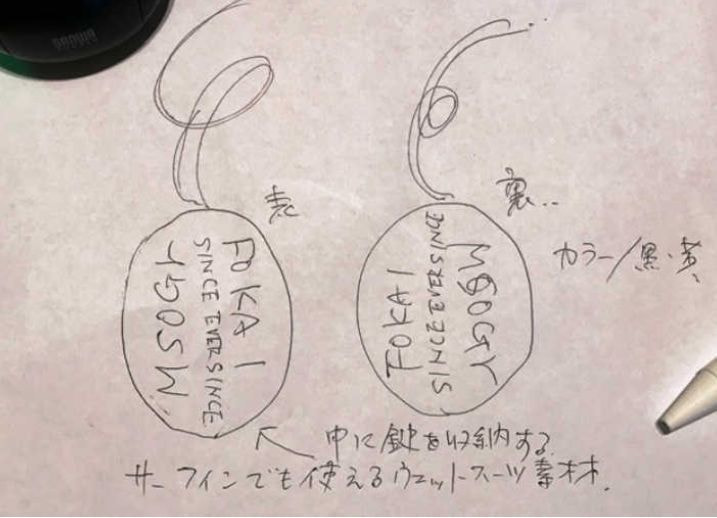 表
FOKAI
SINCE EVER SINCE
裏..
SINCE EVER SINCE
FOKAI
カラー/黒・黄
中に鍵を収納する
サーフィンでも使えるウェットスーツ素材.